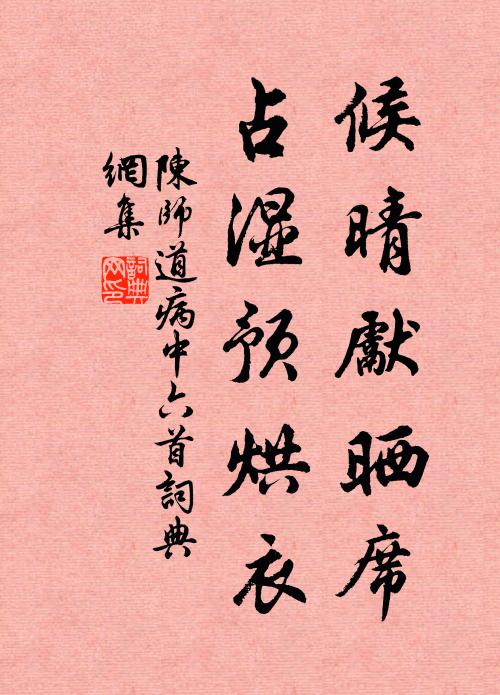 候晴獻晒席
占濕預烘衣
陳師道病中六首詞典
網集
詞典
網印